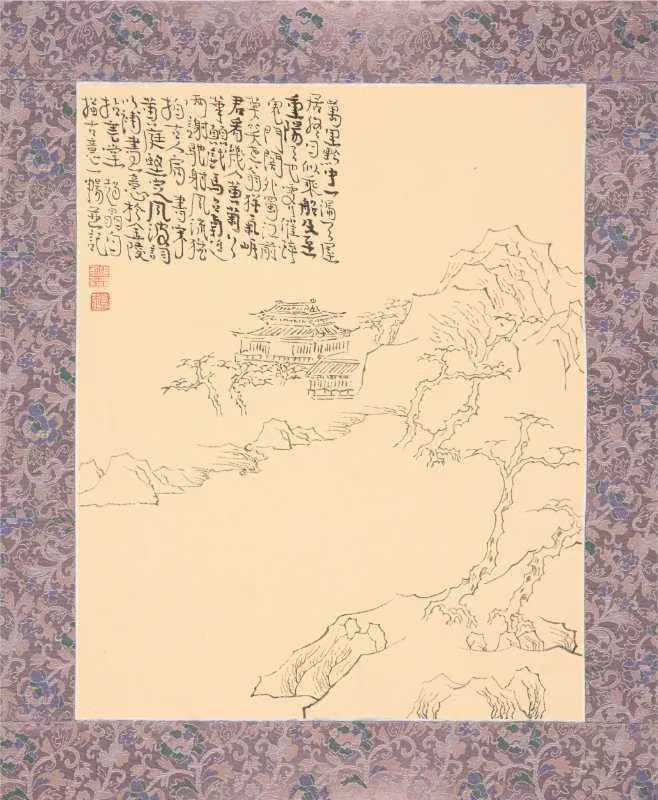 萬里黔中一漏天屋
居終日似乘船及至
重陽天也霽催醉
鬼門關外蜀江前
莫笑老翁猶氣岸
君看幾人黃菊上
華顛戲馬台南追
兩謝馳射風流猶
拍古人肩書宋
黃庭堅定風波詞
以補畫意於金陵
堂翁自
古意一並記